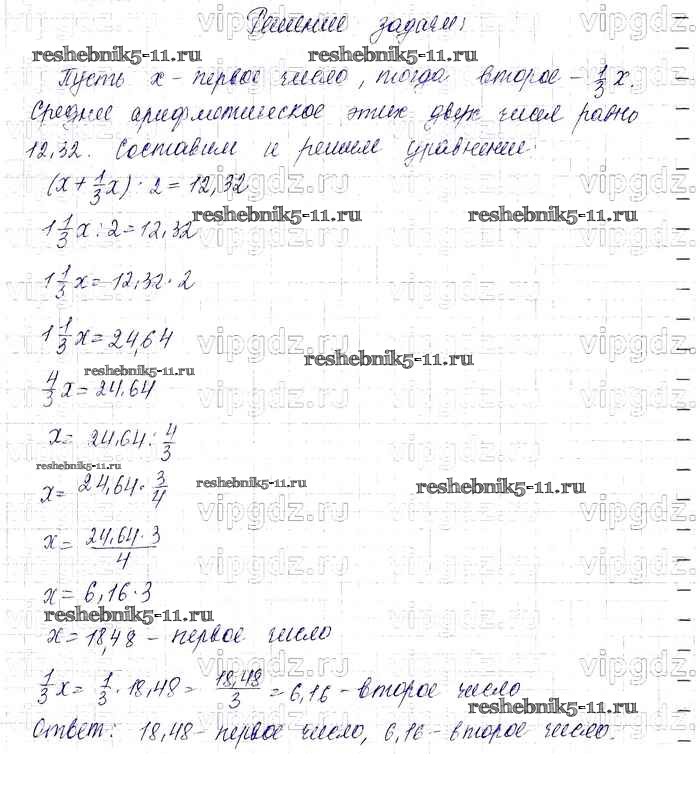 Решение задачи:
reshebnik5-11.ru reshebnik5-11.ru
Пусть x - первое число, тогда второе - 1/3 x.
Среднее арифметическое этих двух чисел равно
12,32. Составим и решим уравнение:
(x + 1/3 x) · 2 = 12,32
reshebnik5-11.ru reshebnik5-11.ru
1 1/3 x : 2 = 12,32
1 1/3 x = 12,32 · 2
1 1/3 x = 24,64
reshebnik5-11.ru
reshebnik5-11.ru
4/3 x = 24,64
x = 24,64 : 4/3
reshebnik5-11.ru
x = 24,64 · 3/4
reshebnik5-11.ru reshebnik5-11.ru
x = 24,64 · 3 / 4
x = 6,16 · 3
reshebnik5-11.ru
x = 18,48 - первое число
1/3 x = 1/3 · 18,48 = 18,48/3 = 6,16 - второе число
reshebnik5-11.ru
Ответ: 18,48 - первое число, 6,16 - второе число.
vipgdz.ru